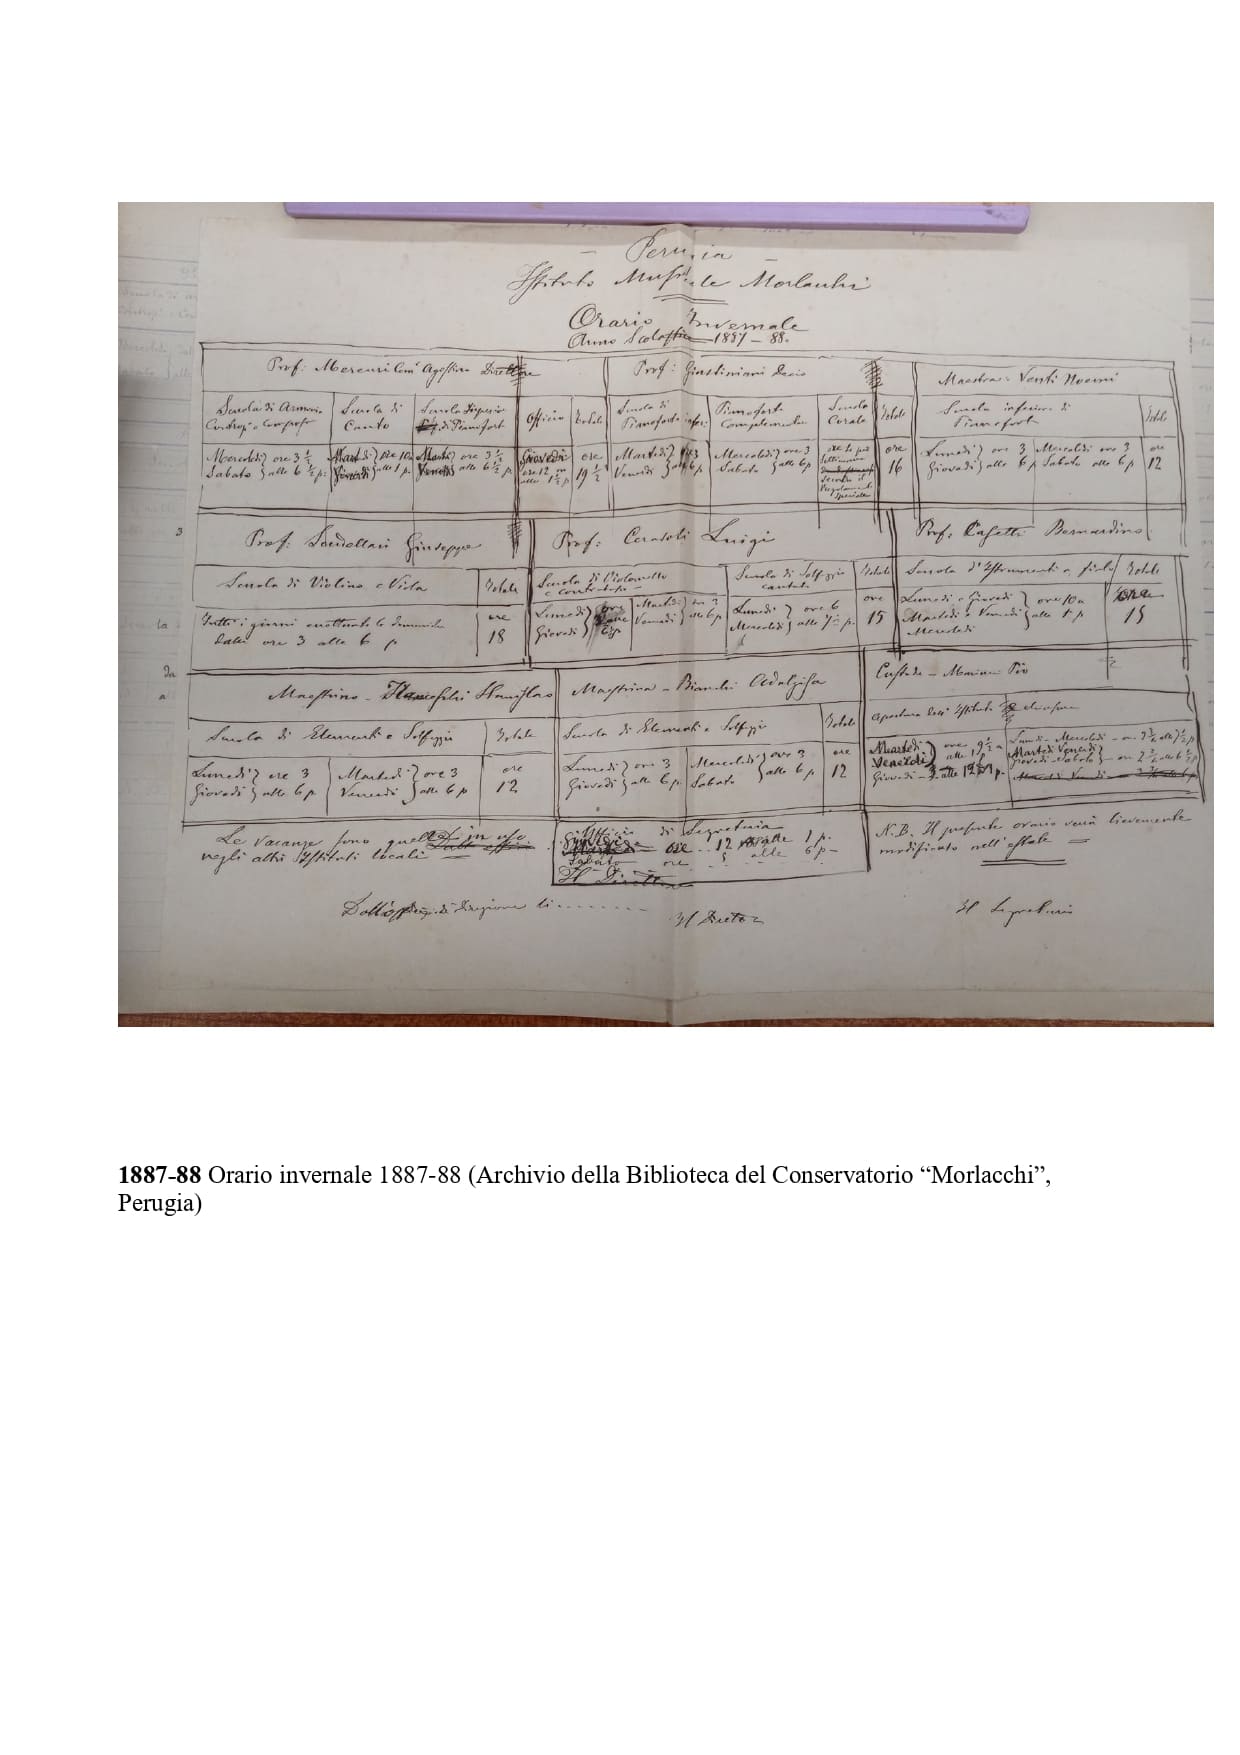 Perugia
Istituto Musicale Morlacchi
Orario Invernale
Anno Scolastico 1887-88.
Prof: Mercuri Agostino Direttore
Prof: Giustiniani Decio
Maestra: Venti Noemi
Scuola di Armonia
Scuola di
Canto
Scuola Superiore
di Pianoforte
Officio
Totale
Scuola di
Pianoforte infer:
Pianoforte
Complementare
Scuola
Corale
Totale
Scuola inferiore di
Pianoforte
Totale
Mercoledì } ore 3 ½
Sabato } alle 6 ½ p.
Martedì } ore 10a
Giovedì } alle 1 p.
Martedì } ore 3 ½
Venerdì } alle 6 ½ p.
Giovedì
ore 12 m
alle 1 ½ p
ore
19 ½
Martedì } ore 3
Venerdì } alle 6 p
Mercoledì } ore 3
Sabato } alle 6 p
secondo il
Regolamento
speciale
ore
16
Lunedì } ore 3
Giovedì } alle 6 p
Mercoledì ore 3
Sabato alle 6 p
ore
12
Prof: Giuseppe
Prof: Cerasoli Luigi
Prof: Bernardino
Scuola di Violino e Viola
Totale
Scuola di Violoncello
e contrabasso
Scuola di Solfeggio
cantato
Totale
Scuola d'Istrumenti a fiato
Totale
Tutti i giorni eccettuate le domeniche
dalle ore 3 alle 6 p
ore
18
Lunedì }
Giovedì }
Martedì } ore 3
Venerdì } alle 6 p
Lunedì } ore 6
Mercoledì } alle 7 ½ p.
ore
15
Lunedì e Giovedì } ore 10a
Martedì e Venerdì } alle 1 p
Mercoledì
ore
15
Maestrino - Stanislao
Maestrina - Bianchi Adalgisa
Custode - Mariani Pio
Scuola di Elementi e Solfeggio
Totale
Scuola di Elementi e Solfeggio
Totale
Apertura dell'Istituto e chiusura
Lunedì } ore 3
Giovedì } alle 6 p
Martedì } ore 3
Venerdì } alle 6 p
ore
12
Lunedì } ore 3
Giovedì } alle 6 p
Mercoledì } ore 3
Sabato } alle 6 p
ore
12
Martedì
Venerdì } ore 9 ½ a
Giovedì
Lunedì - Mercoledì
Martedì Venerdì
Giovedì - Sabato
Le vacanze sono quelle in uso
negli altri Istituti locali
Officio di Segreteria
ore 12 alle 1 p.
Sabato ore 5 alle 6 p -
Il Direttore
N.B. Il presente orario verrà lievemente
modificato nell'estate
Dall'Officio di Direzione li
Il Direttore
Il Segretario
1887-88 Orario invernale 1887-88 (Archivio della Biblioteca del Conservatorio “Morlacchi”,
Perugia)